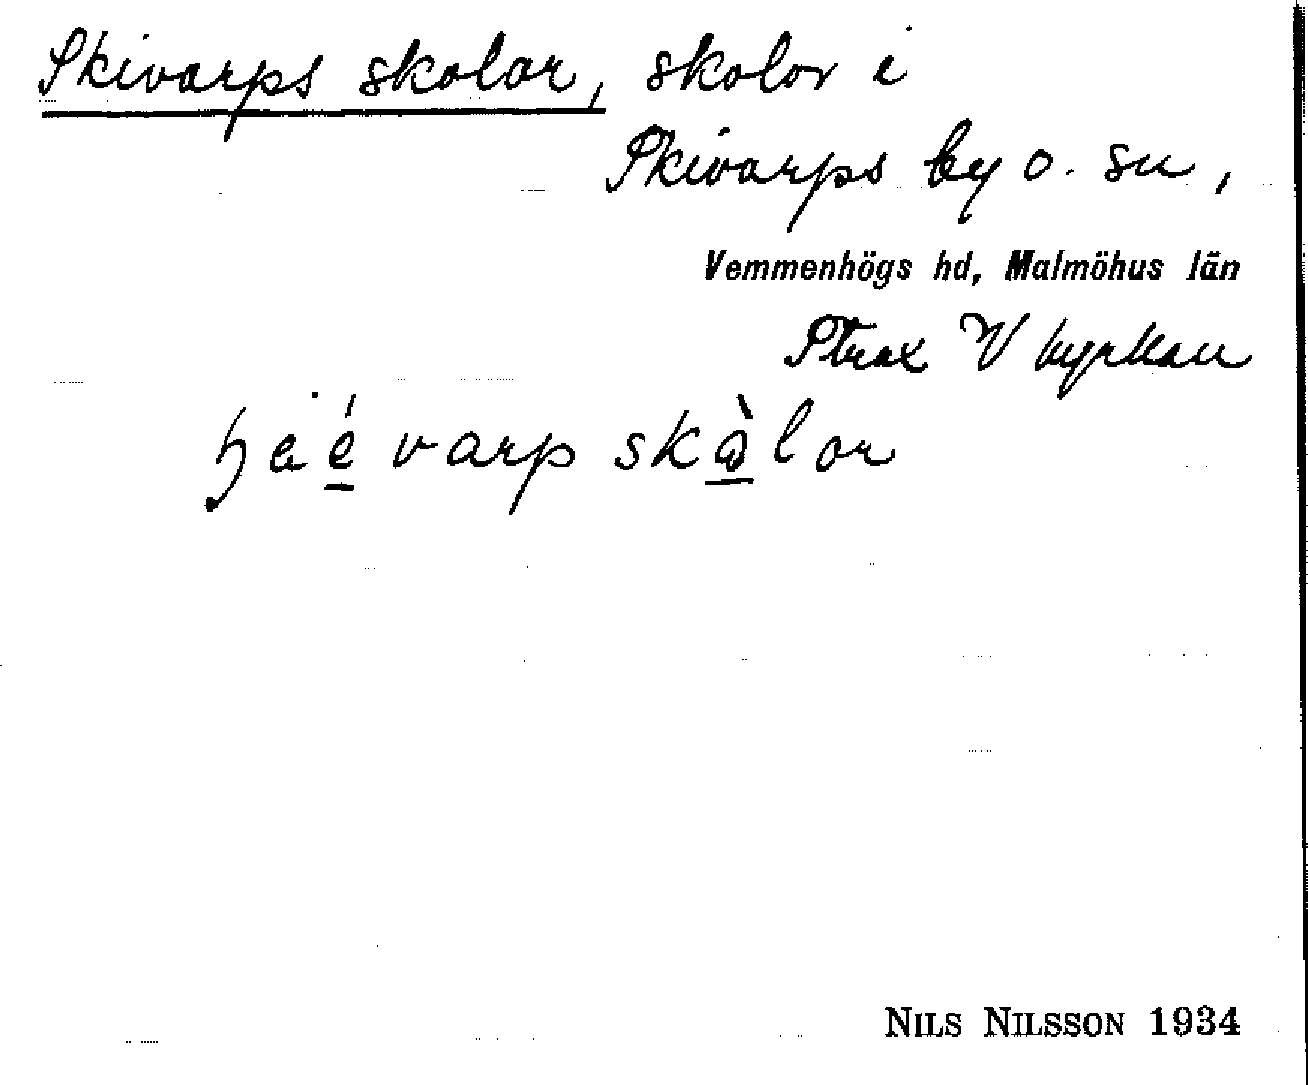 Skivarps skolor, skolor i
Skivarps by o. sn,
Vemmenhögs hd, Malmöhus län
Strax V kyrkan
varp skòlor
NILS NILSSON 1934